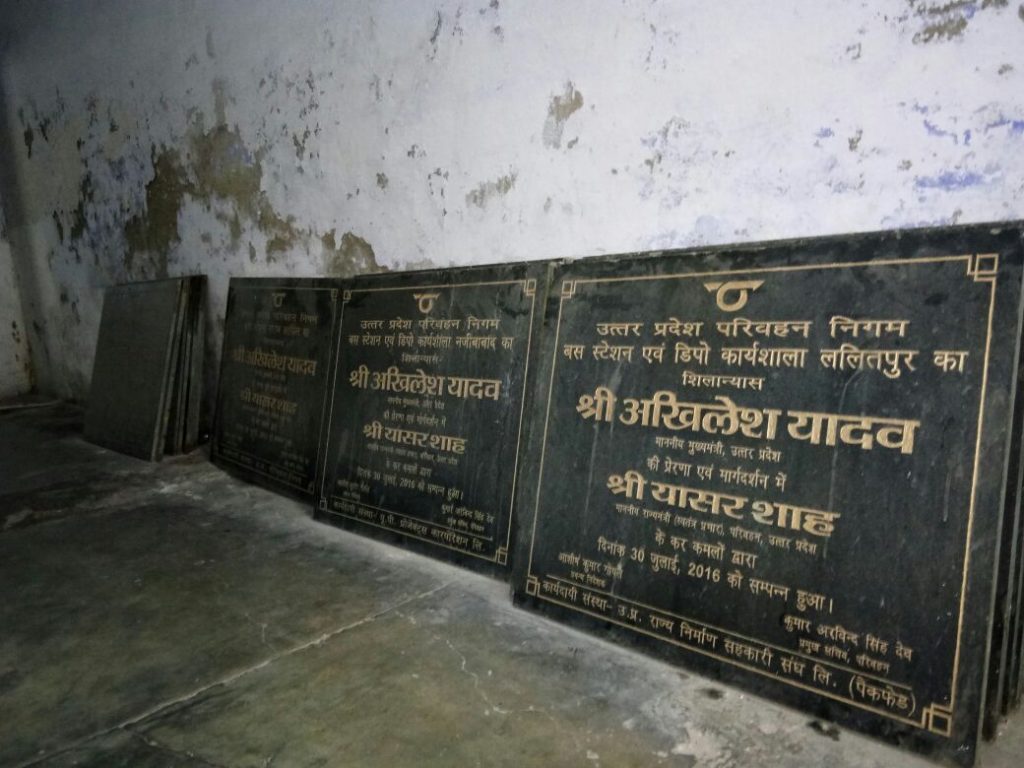 उत्तर प्रदेश परिवहन निगम
श्री अखिलेश यादव
श्री यासर शाह
उत्तर प्रदेश परिवहन निगम
बस स्टेशन एवं डिपो कार्यशाला नजीबाबाद का
शिलान्यास
श्री अखिलेश यादव
माननीय मुख्यमंत्री, उत्तर प्रदेश
की प्रेरणा एवं मार्गदर्शन में
श्री यासर शाह
के कर कमलों द्वारा
दिनांक 30 जुलाई, 2016 को सम्पन्न हुआ।
कार्यदायी संस्था- यू.पी. प्रोजेक्ट्स कारपोरेशन लि.
उत्तर प्रदेश परिवहन निगम
बस स्टेशन एवं डिपो कार्यशाला ललितपुर का
शिलान्यास
श्री अखिलेश यादव
माननीय मुख्यमंत्री, उत्तर प्रदेश
की प्रेरणा एवं मार्गदर्शन में
श्री यासर शाह
माननीय राज्यमंत्री (स्वतंत्र प्रभार), परिवहन, उत्तर प्रदेश
के कर कमलों द्वारा
दिनांक 30 जुलाई, 2016 को सम्पन्न हुआ।
आशीष कुमार गोयल
प्रबन्ध निदेशक
कुमार अरविन्द सिंह देव
प्रमुख सचिव, परिवहन
कार्यदायी संस्था- उ.प्र. राज्य निर्माण सहकारी संघ लि. (पैकफेड)